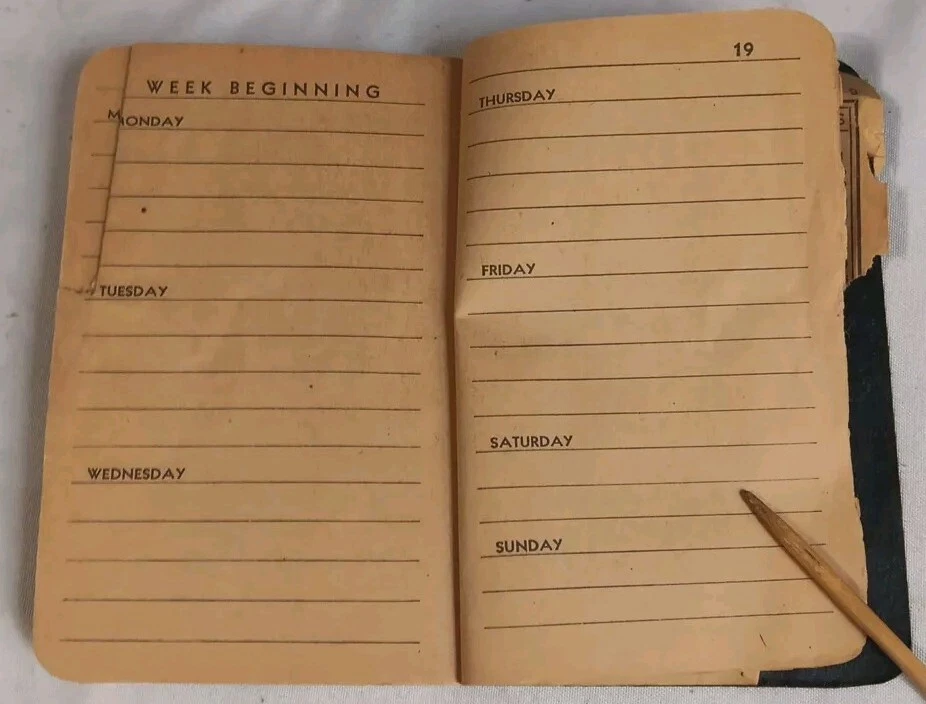 WEEK BEGINNING
MONDAY
TUESDAY
WEDNESDAY
19
THURSDAY
FRIDAY
SATURDAY
SUNDAY